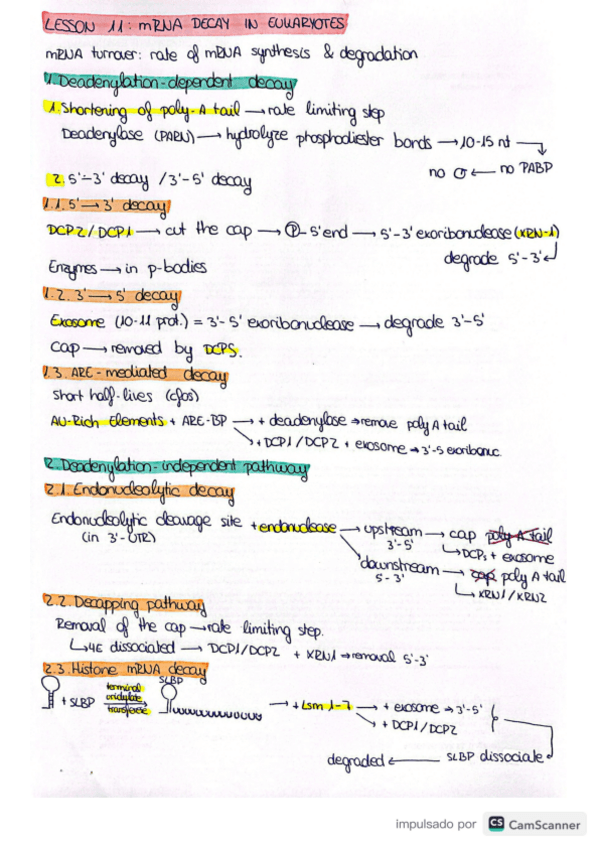 LESSON 11: mRNA DECAY IN EUKARYOTES
mRNA turnover: rate of mRNA synthesis & degradation
1. Deadenylation-dependent decay
1. Shortening of poly-A tail → rate limiting step
Deadenylase (PARN) → hydrolyze phosphodiester bonds → 10-15 nt
no ← no PABP
2. 5'-3' decay / 3'-5' decay
1.1. 5' → 3' decay
DCP2 / DCP1 → cut the cap → P-5'end → 5'-3' exoribonuclease (XRN-1)
degrade 5'-3'
Enzymes → in p-bodies
1.2. 3' → 5' decay
Exosome (10-11 prot.) = 3'-5' exoribonuclease → degrade 3'-5'
Cap → removed by DCPS.
1.3. ARE-mediated decay
Short half-lives (cfos)
AU-Rich Elements + ARE-BP → + deadenylase → remove poly A tail
+ DCP1/DCP2 + exosome → 3'-5 exoribonuc.
2. Deadenylation-independent pathway
2.1. Endonucleolytic decay
Endonucleolytic cleavage site + endonuclease → upstream → cap poly A tail
(in 3'-UTR) 3'-5' DCPs + exosome
downstream → cap poly A tail
5-3' XRN1/XRN2
2.2. Decapping pathway
Removal of the cap → rate limiting step.
4E dissociated → DCP1/DCP2 + XRN1 → removal 5'-3'
2.3. Histone mRNA decay
+ SLBP terminal uridylate transferase SLBP → + Lsm 1-7 → + exosome → 3'-5'
+ DCP1/DCP2
degraded ← SLBP dissociate
impulsado por CS CamScanner